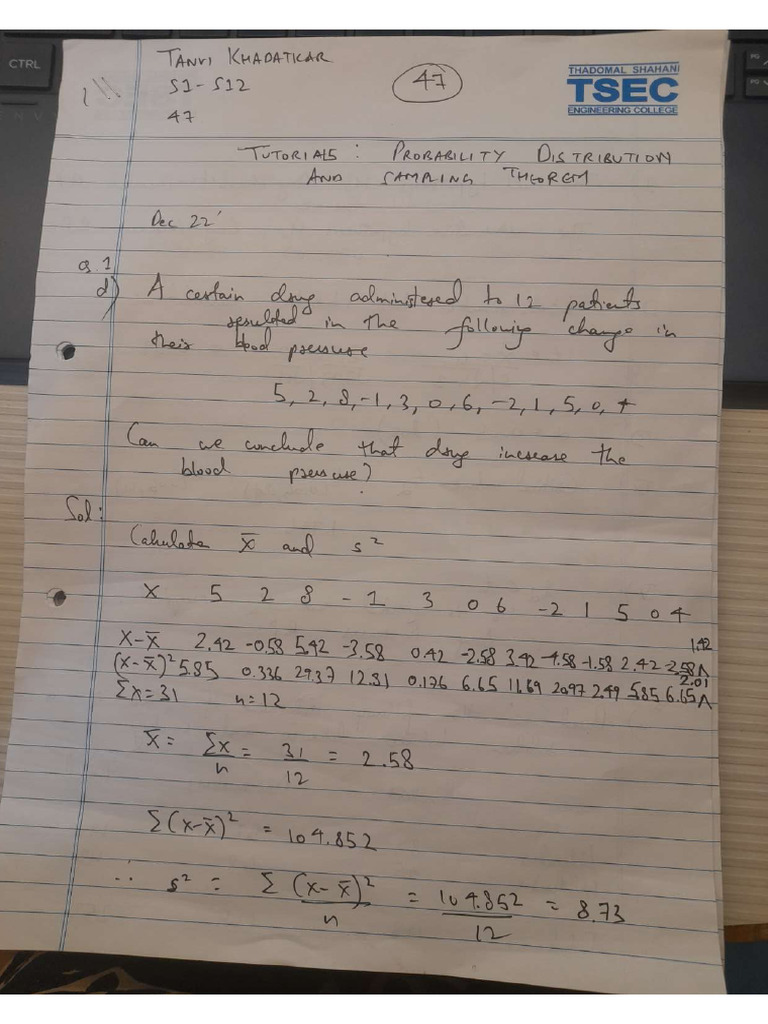 CTRL
TANVI KHADATKAR
S1-S12
47
47
THADOMAL SHAHANI
TSEC
ENGINEERING COLLEGE
TUTORIALS : PROBABILITY DISTRIBUTION
AND SAMPLING THEOREM
Dec 22'
Q.1
d) A certain drug administered to 12 patients
resulted in the following change in
their blood pressure
5, 2, 8, -1, 3, 0, 6, -2, 1, 5, 0, 4
Can we conclude that drug increase the
blood pressure?
Sol:
Calculate x̄ and s²
X 5 2 8 -1 3 0 6 -2 1 5 0 4
X-x̄ 2.42 -0.58 5.42 -3.58 0.42 -2.58 3.42 -4.58 -1.58 2.42 -2.58 1.42
(x-x̄)² 5.85 0.336 29.37 12.81 0.176 6.65 11.69 20.97 2.49 5.85 6.65 2.01
Σx=31 n=12
x̄ = Σx/n = 31/12 = 2.58
Σ(x-x̄)² = 104.852
∴ s² = Σ(x-x̄)²/n = 104.852/12 = 8.73